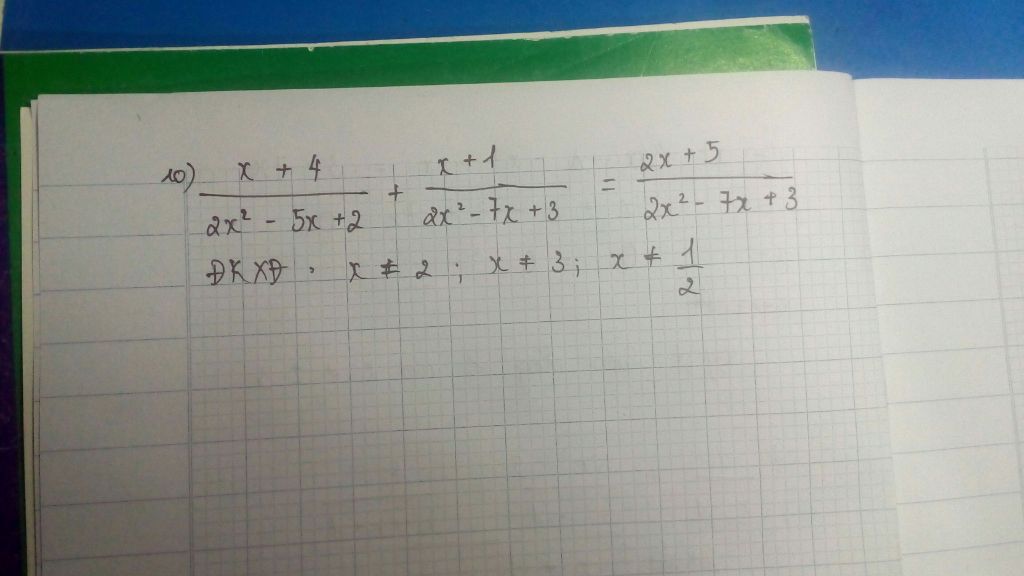 10) x + 4 / 2x² - 5x + 2 + x + 1 / 2x² - 7x + 3 = 2x + 5 / 2x² - 7x + 3
ĐKXĐ : x ≠ 2 ; x ≠ 3 ; x ≠ 1/2